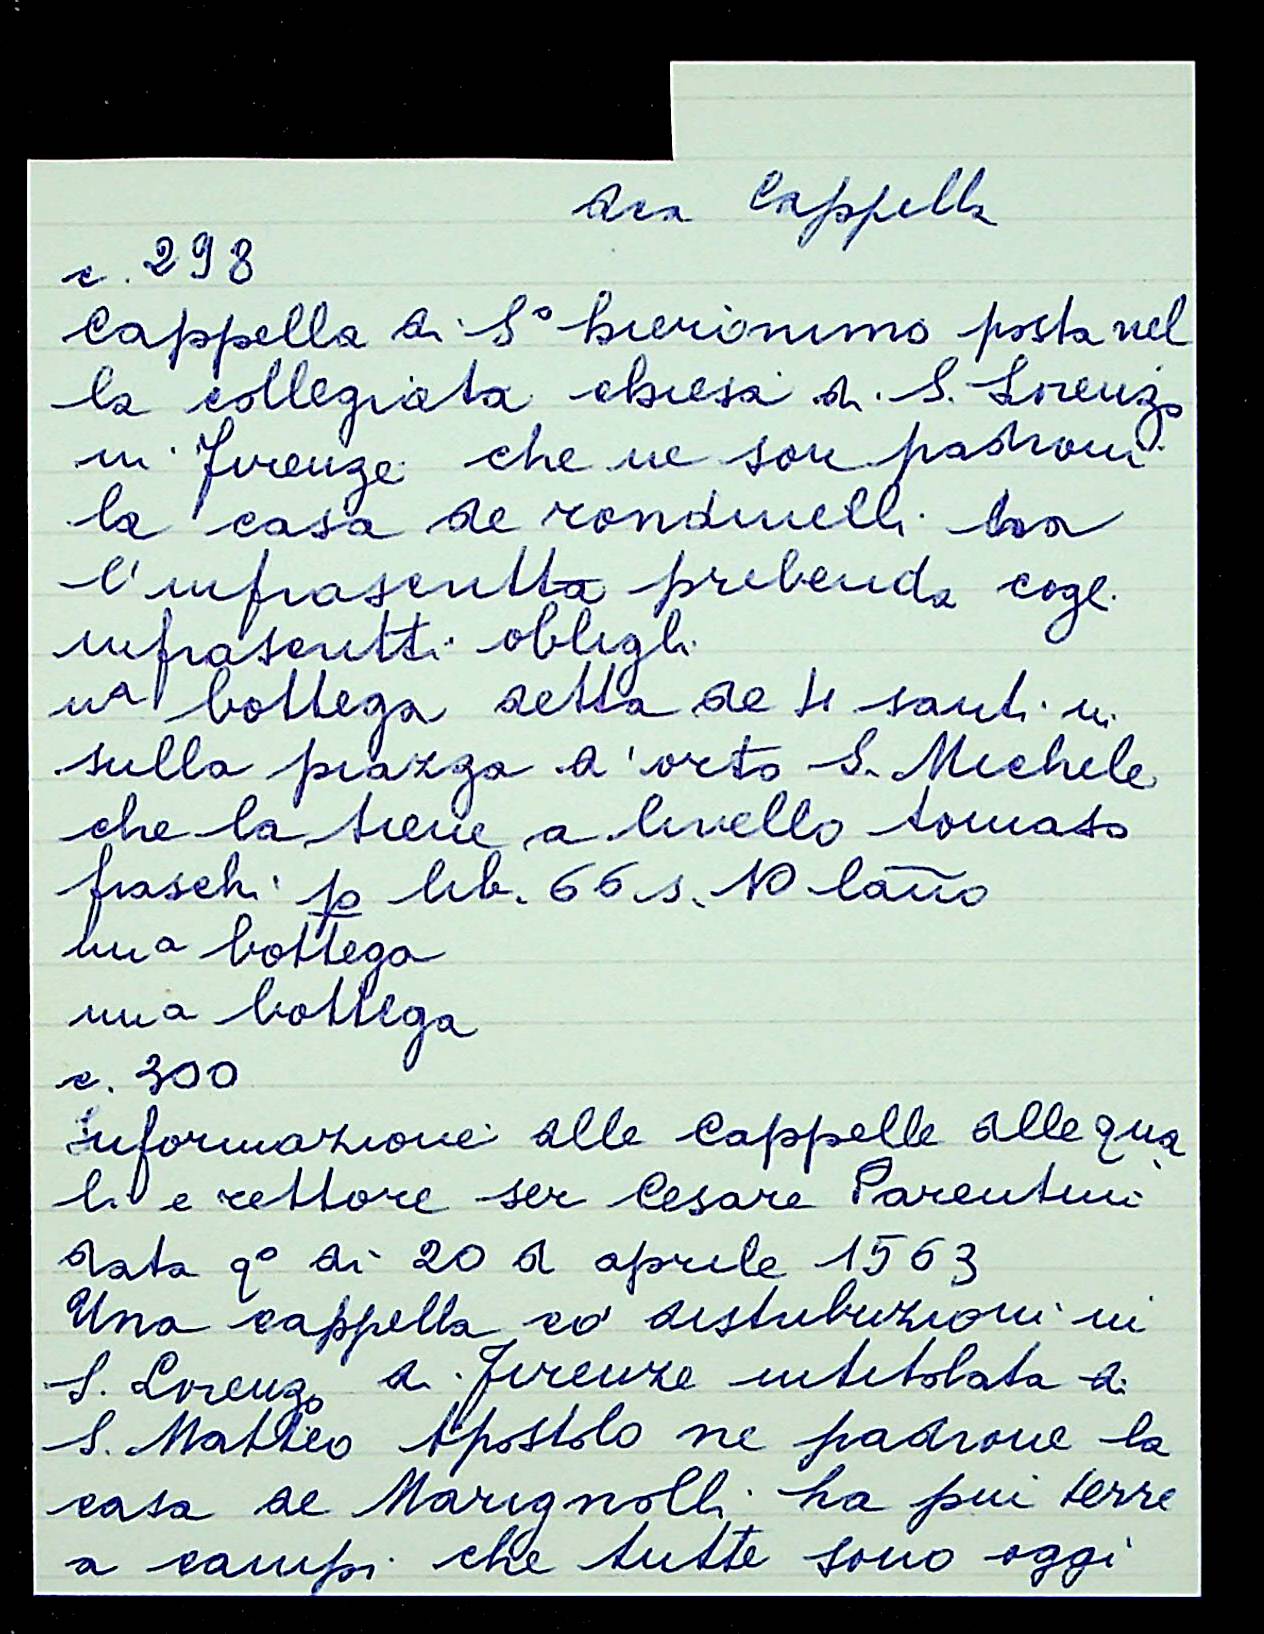 dia Cappella
c. 298
Cappella di S° hieronimo posta nel
la collegiata chiesa di S. Lorenzo
in Firenze che ne son padroni
la casa de rondinelli ha
l'infrascritta prebenda cogl.
infrascritti oblighi
un<sup>a</sup> bottega detta de 4 santi in
sulla piazza d'orto S. Michele
che la tiene a livello tomaso
fraschi p lib. 66 s. 10 lāno
una bottega
una bottega
c. 300
Informazione alle Cappelle alle qua
li è rettore ser Cesare Parentini
data q° di 20 d aprile 1563
Una cappella cō distribuzioni in
S. Lorenzo di Firenze intitolata di
S. Matteo Apostolo ne padrone la
casa de Marignolli ha piu terre
a campi che tutte sono oggi